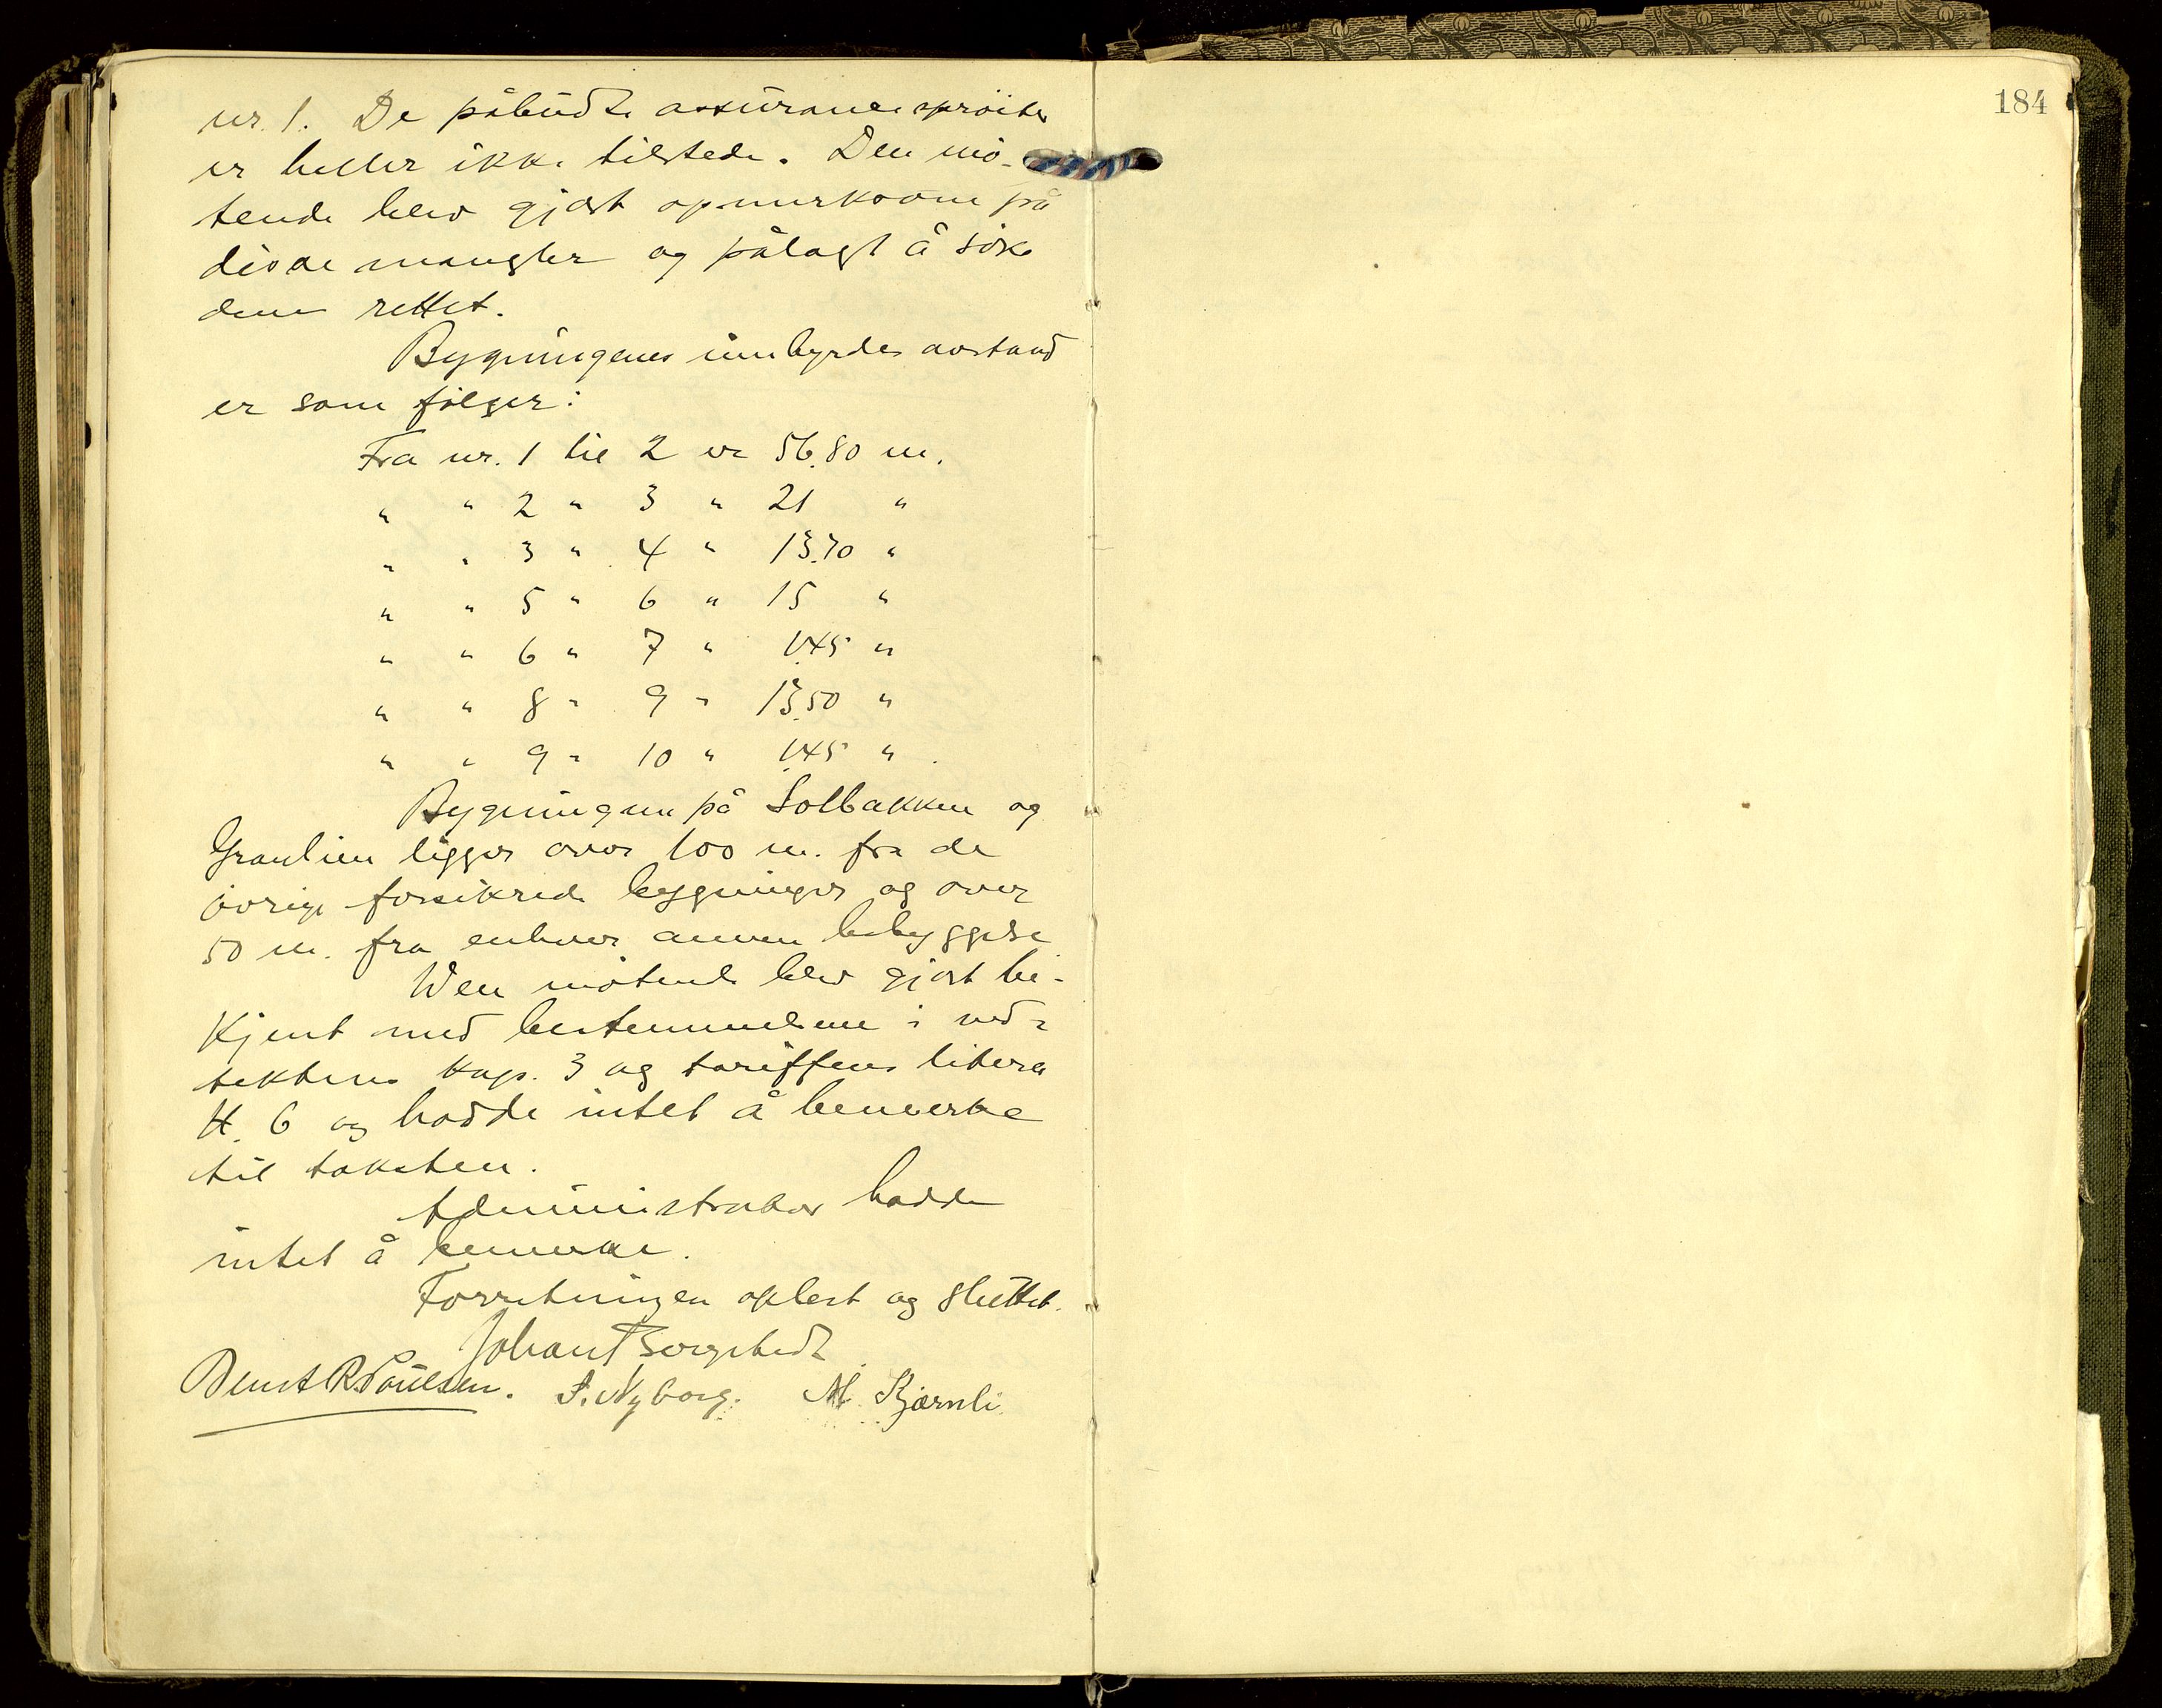 nr. 1. De påbudte assurancesprøiter
er heller ikke tilstede. Den mø-
tende blev gjort opmerksom på
disse mangler og pålagt å søke
dem rettet.
Bygningenes innbyrdes avstand
er som følger:
Fra nr. 1 til 2 er 56.80 m.
" " 2 " 3 " 21 "
" " 3 " 4 " 13.70 "
" " 5 " 6 " 15 "
" " 6 " 7 " 1.45 "
" " 8 " 9 " 13.50 "
" " 9 " 10 " 1.45 " .
Bygningene på Solbakken og
Granlien ligger over 100 m. fra de
øvrige forsikrede bygninger og over
50 m. fra enhver annen bebyggelse
Den møtende blev gjort be-
kjent med bestemmelsene i ved-
tektene kap. 3 og tariffens litera
H. 6 og hadde intet å bemerke
til taksten.
Administrator hadde
intet å bemerke.
Forretningen oplest og sluttet.
Johan Borgstedt
Bernt R. Paulsen. S. Nyborg. M. Bjørnli
184